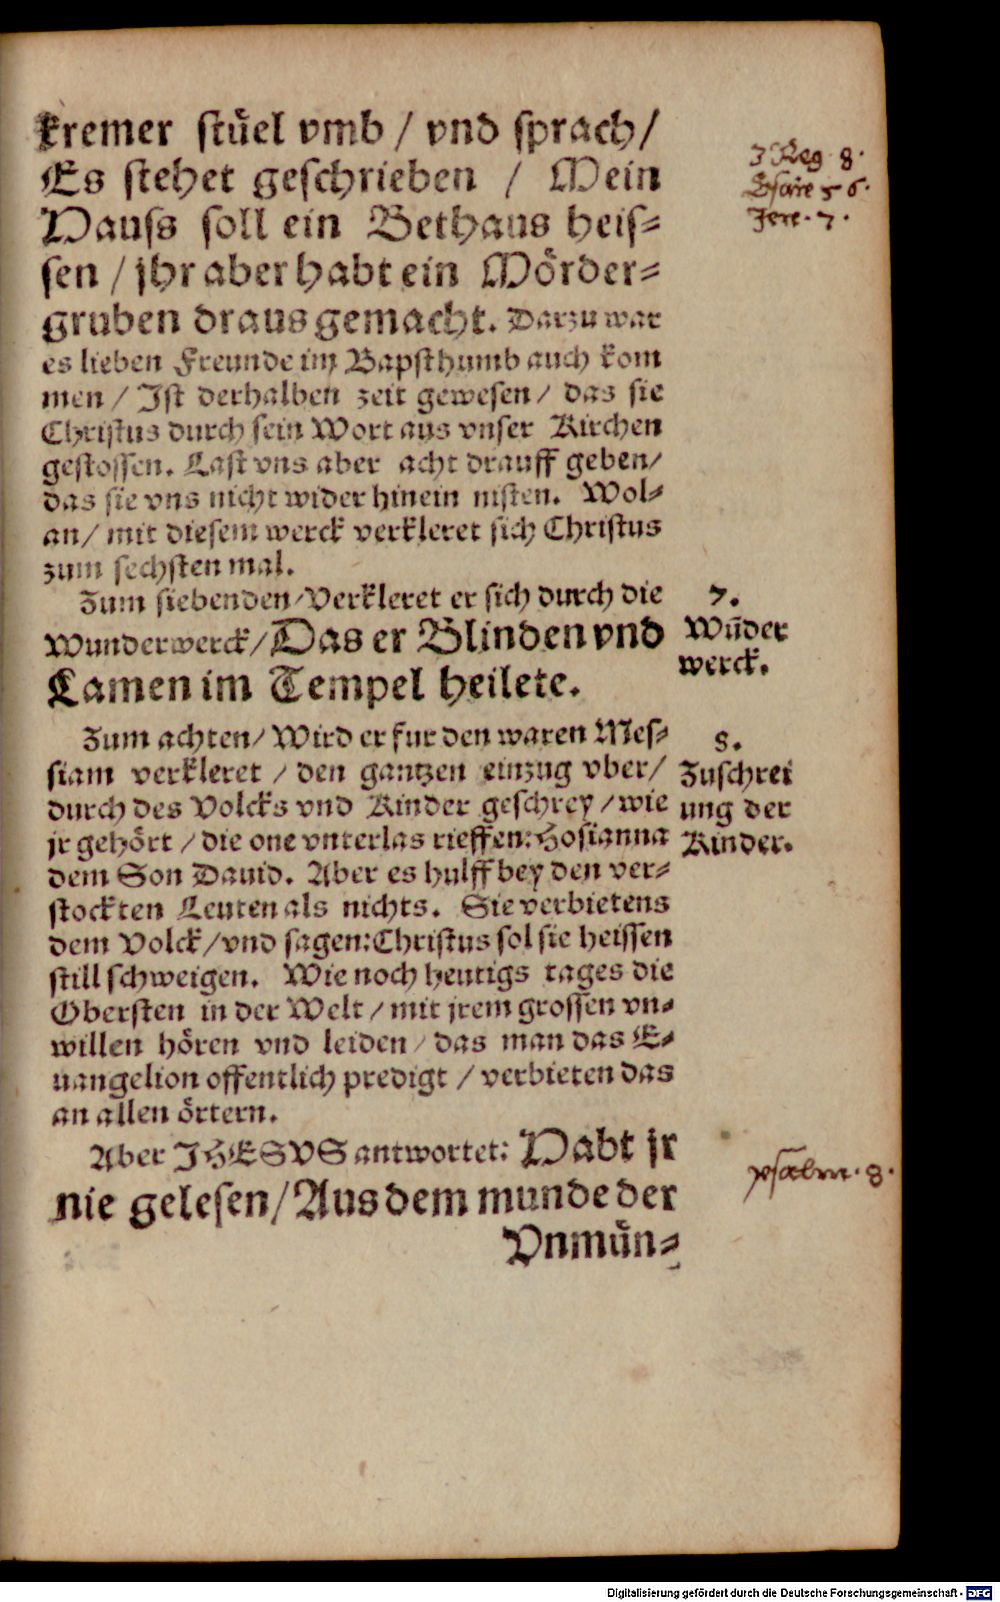 kremer stůel vmb / vnd sprach/
Es stehet geschrieben / Mein
Hauss soll ein Bethaus heis⸗
sen / jhr aber habt ein Mörder⸗
gruben draus gemacht. Darzu war
es lieben Freunde im Bapsthumb auch kom
men / Ist derhalben zeit gewesen / das sie
Christus durch sein Wort aus vnser Kirchen
gestossen. Last vns aber acht drauff geben/
das sie vns nicht wider hinein nisten. Wol⸗
an/ mit diesem werck verkleret sich Christus
zum sechsten mal.
Zum siebenden/Verkleret er sich durch die
Wunderwerck/Das er Blinden vnd
Lamen im Tempel heilete.
Zum achten/ Wird er fur den waren Mes⸗
siam verkleret / den gantzen einzug vber/
durch des Volcks vnd Kinder geschrey / wie
jr gehört / die one vnterlas rieffen: Hosianna
dem Son Dauid. Aber es hulff bey den ver⸗
stockten Leuten als nichts. Sie verbietens
dem Volck/vnd sagen: Christus sol sie heissen
still schweigen. Wie noch heutigs tages die
Obersten in der Welt / mit jrem grossen vn⸗
willen hören vnd leiden / das man das E⸗
uangelion offentlich predigt / verbieten das
an allen örtern.
Aber JHESVS antwortet: Habt jr
nie gelesen/Aus dem munde der
Vnmůn⸗
3 Reg 8.
Esaie 56.
Jere. 7.
7.
Wūder
werck.
8.
Zuschrei
ung der
Kinder.
psalm. 8.
Digitalisierung gefördert durch die Deutsche Forschungsgemeinschaft - DFG